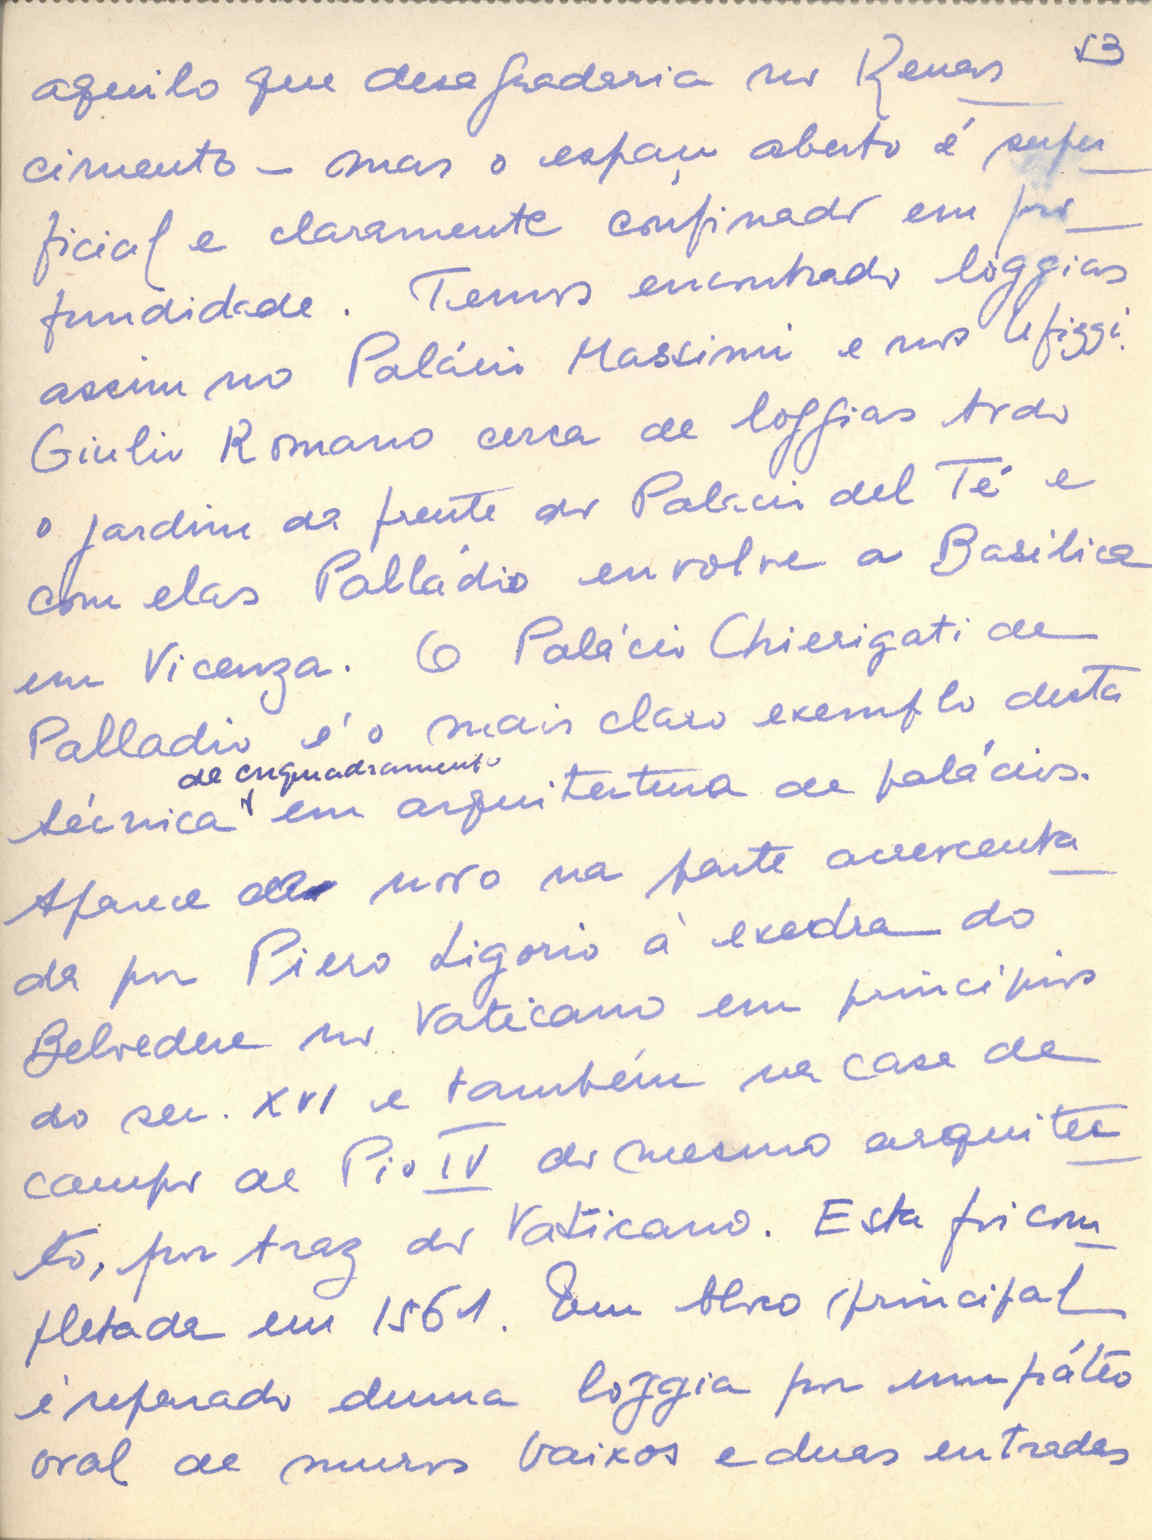 53
aquilo que desagradaria no Renas
cimento - mas o espaço aberto é super
ficial e claramente confinado em pro
fundidade. Temos encontrado loggias
assim no Palácio Massimi e nos Uffizzi.
Giulio Romano cerca de loggias todo
o jardim da frente do Palacio del Té e
com elas Palládio envolve a Basilica
em Vicenza. O Palácio Chierigati de
Palladio é o mais claro exemplo desta
de enquadramento
técnica em arquitectura de palácios.
Aparece de novo na parte acrescenta
da por Piero Ligorio à exedra do
Belvedere no Vaticano em principios
do sec. XVI e também na casa de
campo de Pio IV do mesmo arquitec
to, por traz do Vaticano. Esta foi com
pletada em 1561. Um bloco principal
é separado duma loggia por um pátio
oval de muros baixos e duas entradas